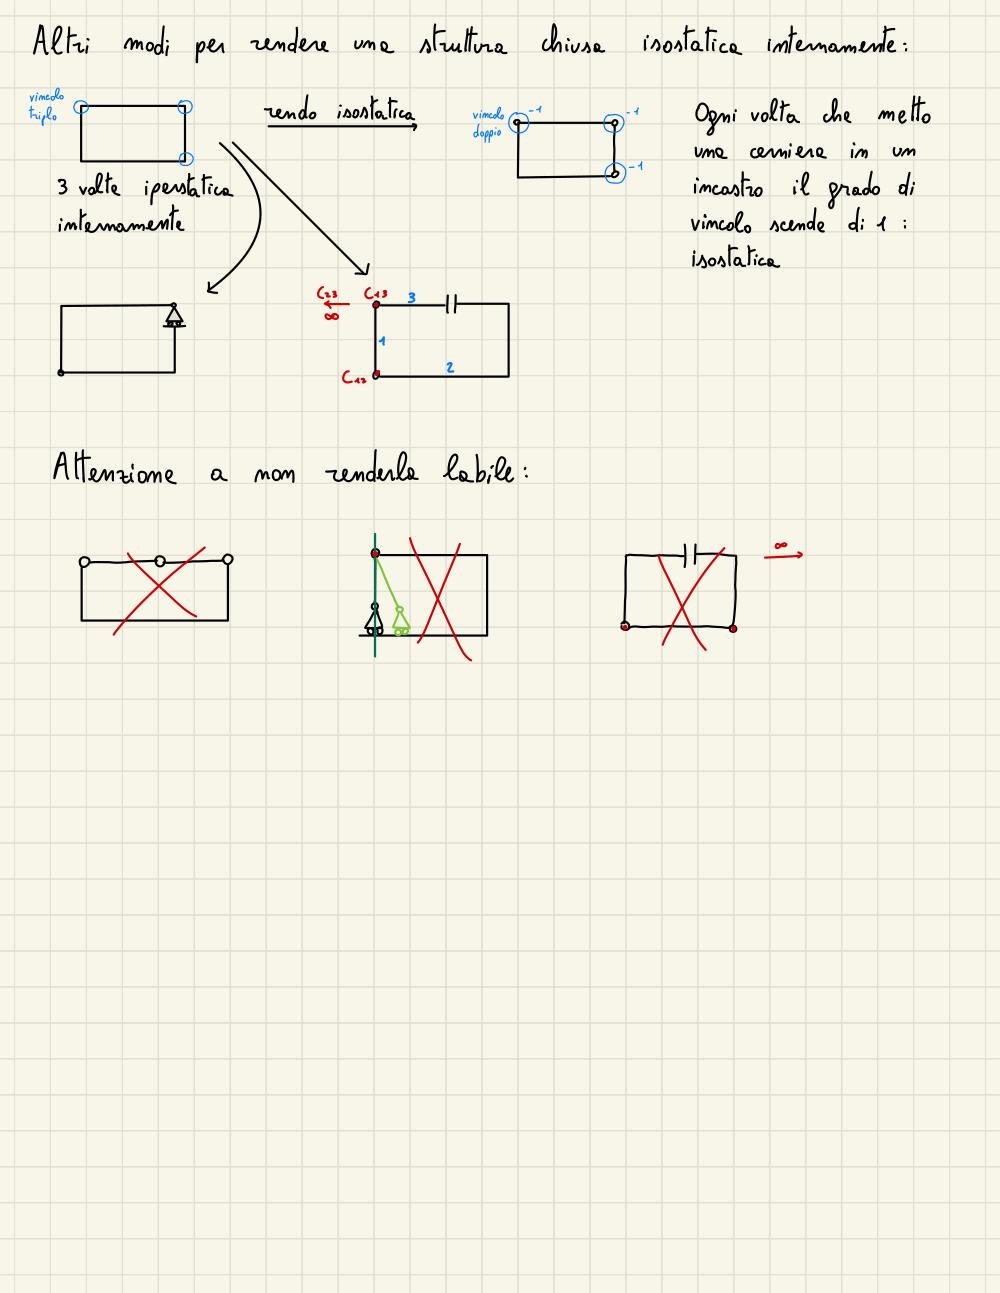 Altri modi per rendere una struttura chiusa isostatica internamente:
vincolo
triplo
rendo isostatica
vincolo
doppio
-1
-1
-1
3 volte iperstatica
internamente
Ogni volta che metto
una cerniera in un
incastro il grado di
vincolo scende di 1 :
isostatica
C23
∞
C13
3
1
2
C12
Attenzione a non renderla labile:
∞